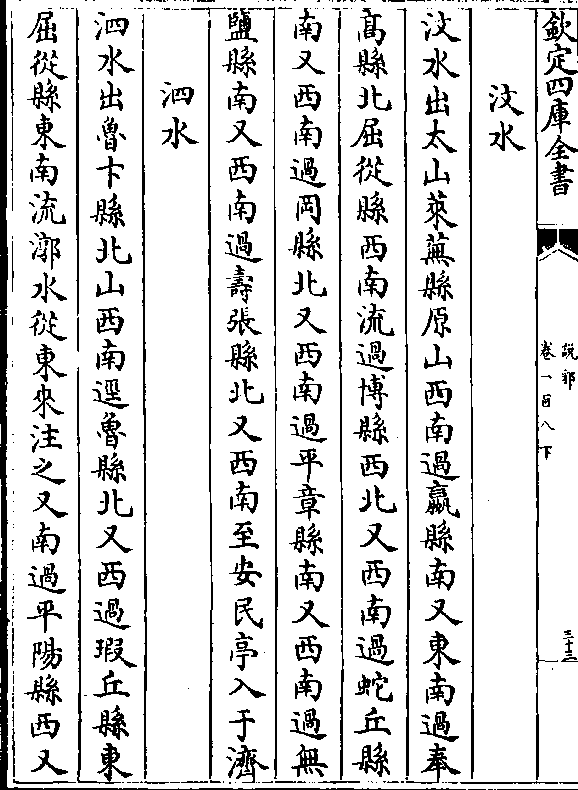 欽定四庫全書
說郛
卷一百八下
三十三
汶水
汶水出太山萊蕪縣原山西南過嬴縣南又東南過奉
高縣北屈從縣西南流過博縣西北又西南過蛇丘縣
南又西南過岡縣北又西南過平章縣南又西南過無
鹽縣南又西南過壽張縣北又西南至安民亭入于濟
泗水
泗水出魯卞縣北山西南逕魯縣北又西過瑕丘縣東
屈從縣東南流漷水從東來注之又南過平陽縣西又